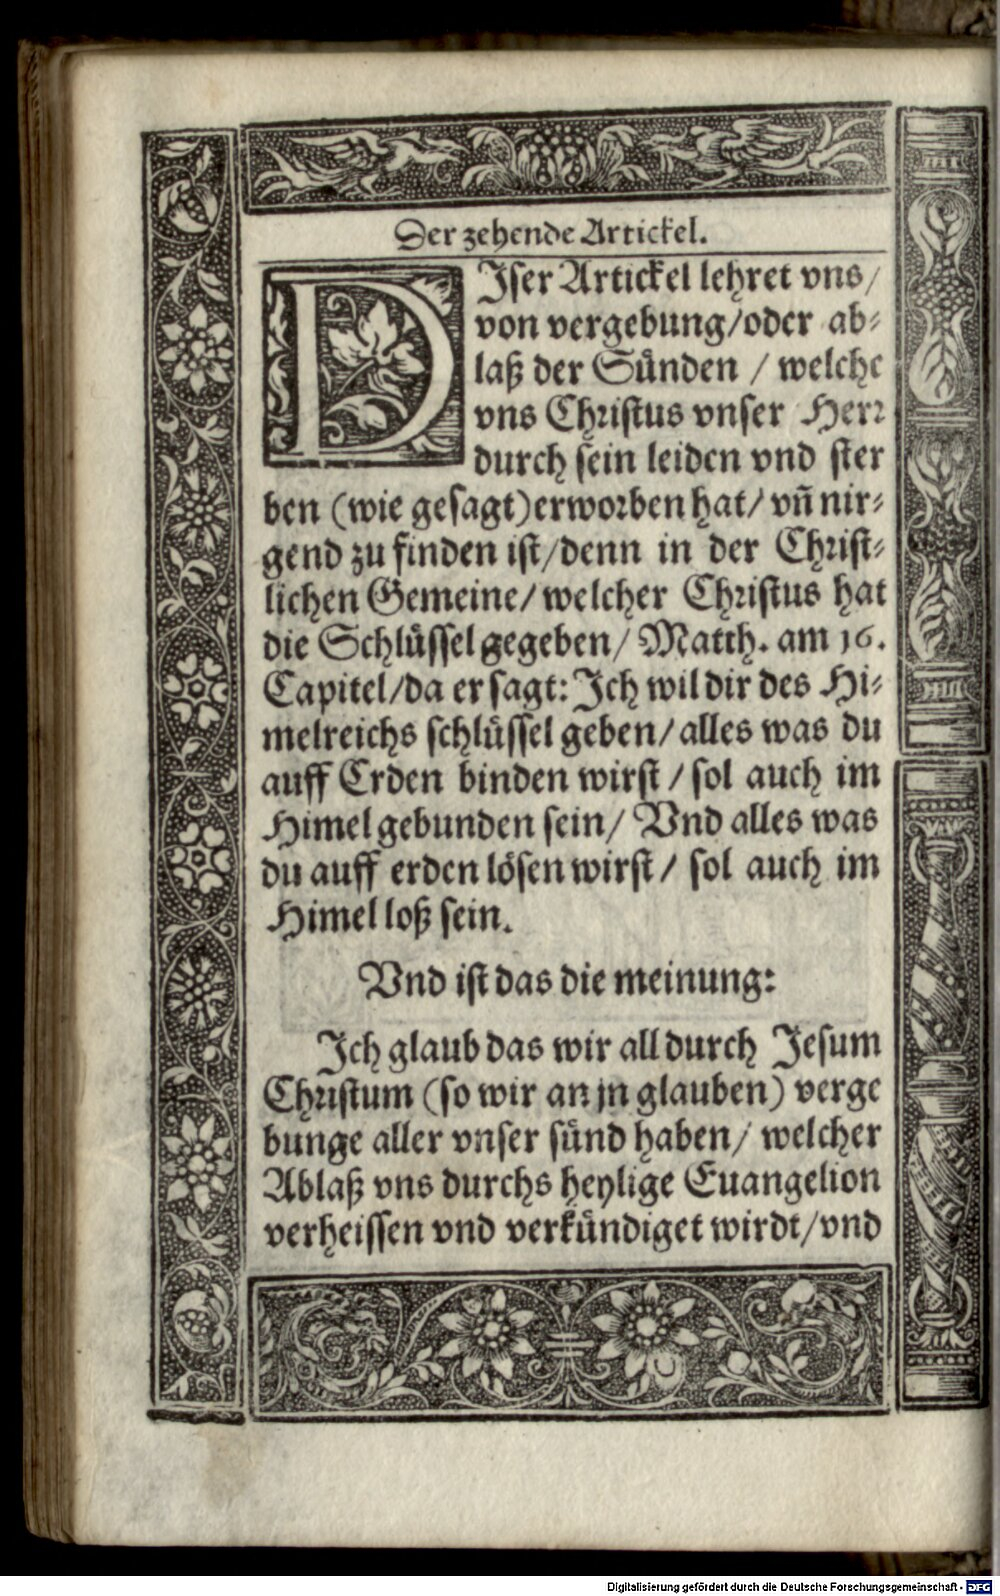 Der zehende Artickel.
DIser Artickel lehret vns/
von vergebung/oder ab⸗
laß der Sünden / welche
vns Christus vnser Herr
durch sein leiden vnd ster
ben (wie gesagt) erworben hat/ vñ nir⸗
gend zu finden ist/denn in der Christ⸗
lichen Gemeine/ welcher Christus hat
die Schlüssel gegeben/ Matth. am 16.
Capitel/da er sagt: Ich wil dir des Hi⸗
melreichs schlüssel geben/ alles was du
auff Erden binden wirst / sol auch im
Himel gebunden sein/ Vnd alles was
du auff erden lösen wirst/ sol auch im
Himel loß sein.
Vnd ist das die meinung:
Ich glaub das wir all durch Jesum
Christum (so wir an jn glauben) verge
bunge aller vnser sünd haben/ welcher
Ablaß vns durchs heylige Euangelion
verheissen vnd verkündiget wirdt/vnd
Digitalisierung gefördert durch die Deutsche Forschungsgemeinschaft - DFG